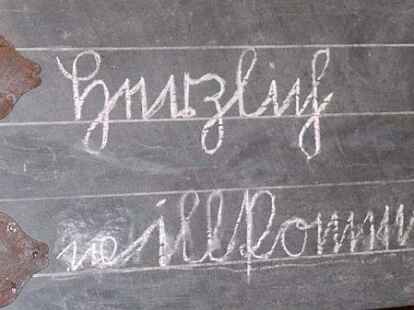 Herzlich
willkomm